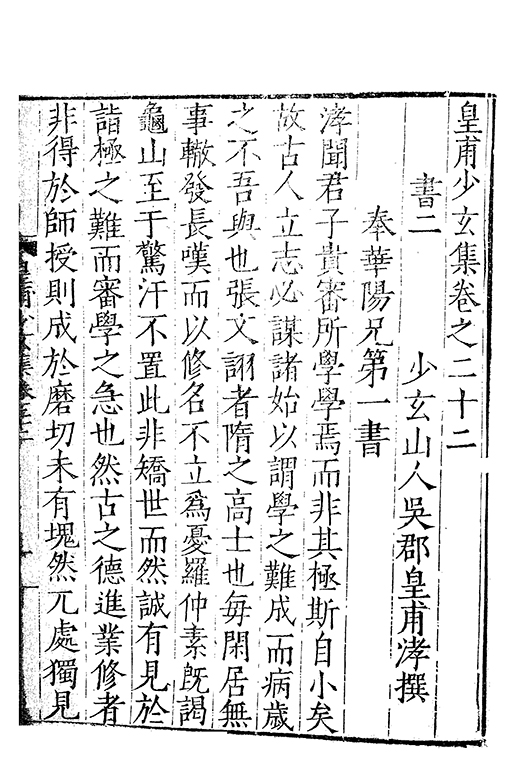 皇甫少玄集卷之二十二
少玄山人吳郡皇甫涍撰
書二
奉華陽兄第一書
涍聞君子貴審所學學焉而非其極斯自小矣
故古人立志必謀諸始以謂學之難成而病歲
之不吾與也張文詡者隋之高士也每閑居無
事轍發長嘆而以修名不立爲憂羅仲素旣謁
龜山至于驚汗不置此非矯世而然誠有見於
詣極之難而審學之急也然古之德進業修者
非得於師授則成於磨切未有塊然兀處獨見